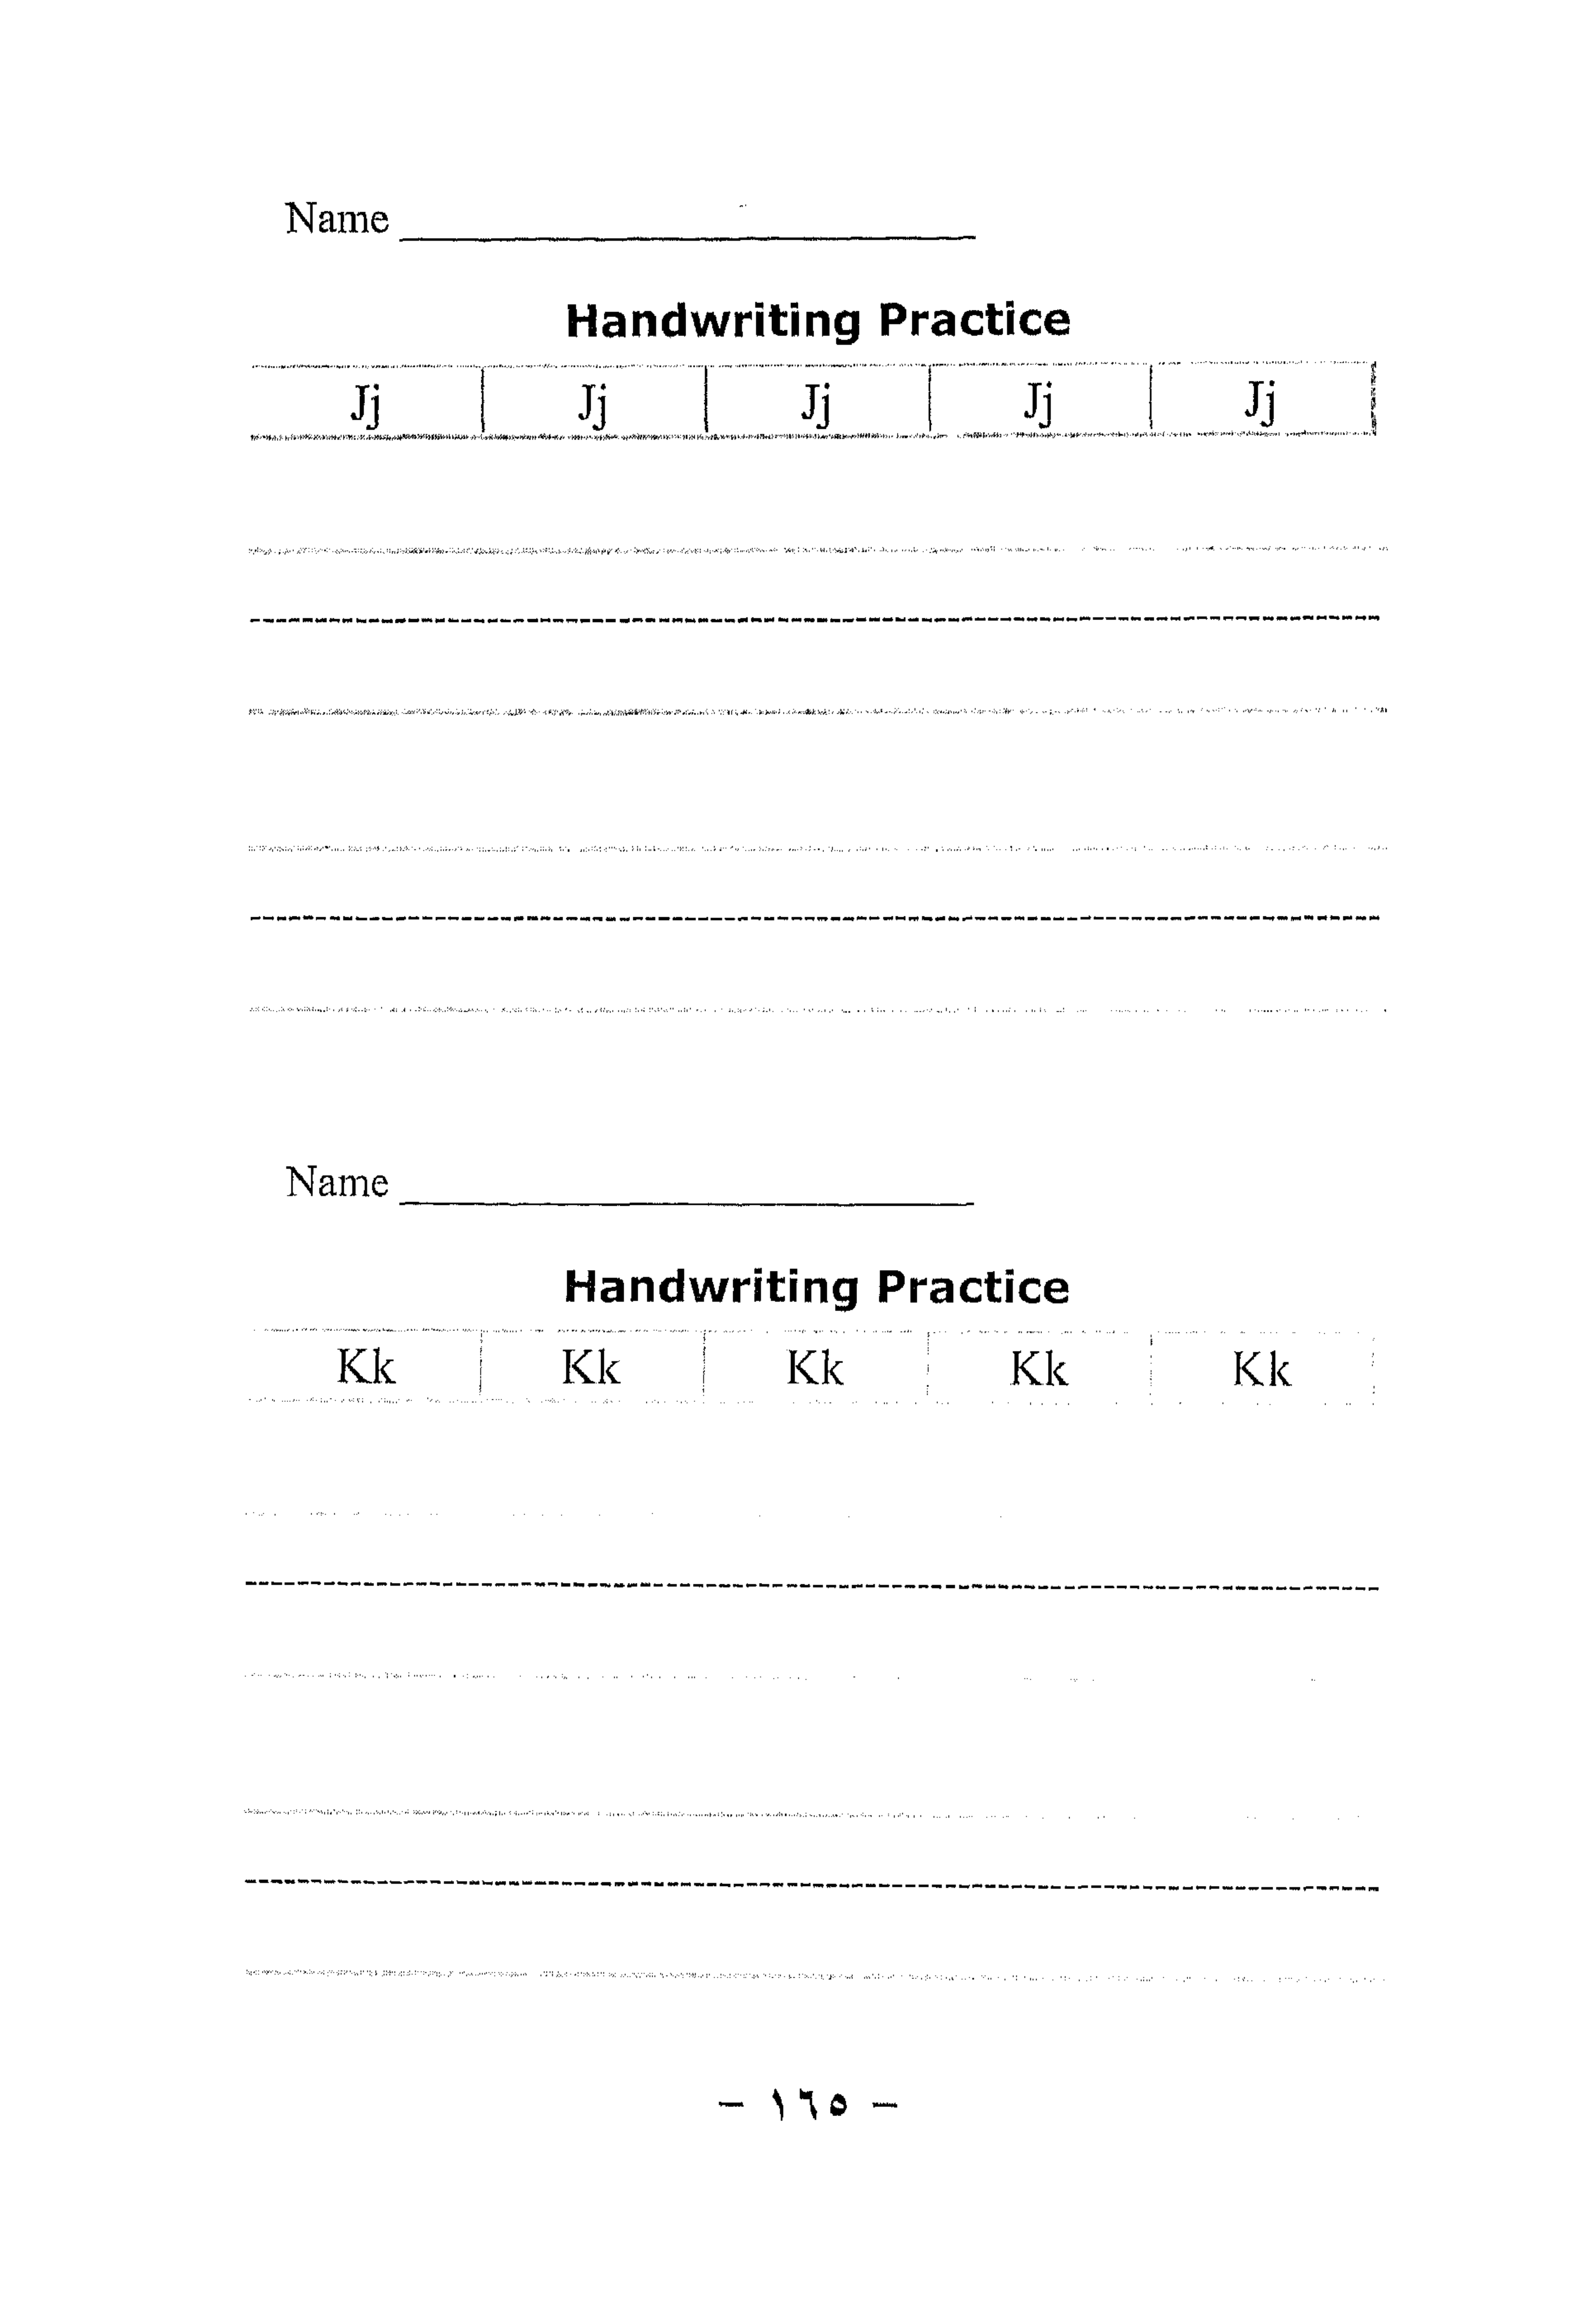 Name ____________________
Handwriting Practice
Jj Jj Jj Jj Jj
Name ____________________
Handwriting Practice
Kk Kk Kk Kk Kk
- ١٦٥ -